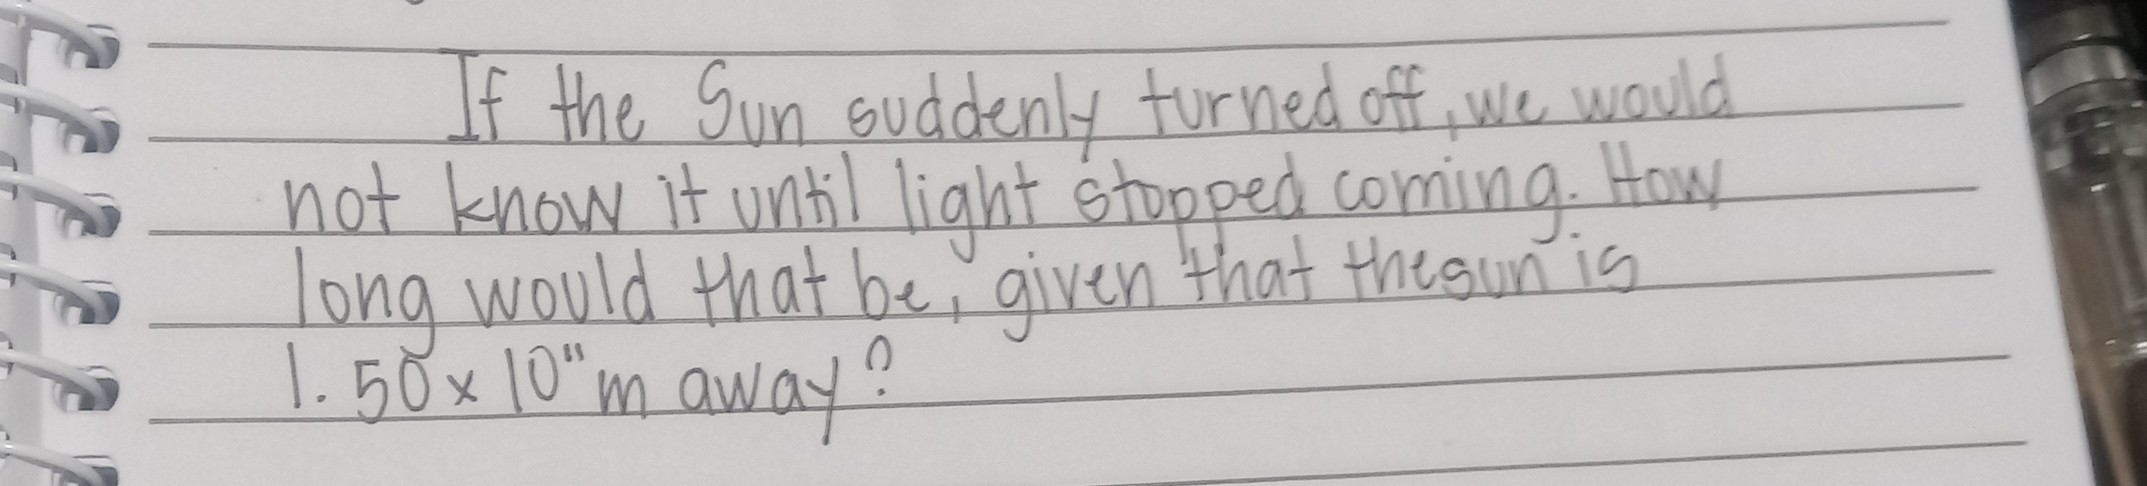 If the Sun suddenly turned off, we would
not know it until light stopped coming. How
long would that be, given that the sun is
1.50 x 10¹¹ m away?